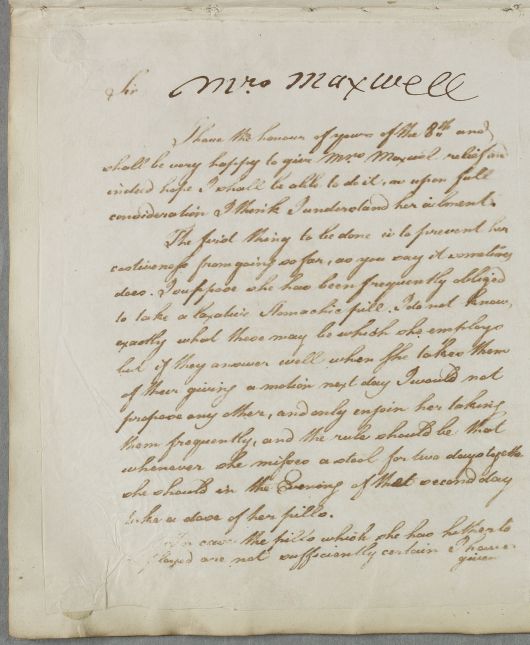 Sir
Mrs Maxwell
I have the honour of yours of the 8th and
shall be very happy to give Mrs Maxwel relief and
indeed hope I shall be able to do it, as upon full
consideration I think I understand her ailment.
The first thing to be done is to prevent her
costiveness from going so far, as you say it sometimes
does. I suppose she has been frequently obliged
to take a laxative Stomachic pill. I do not know,
exactly what these may be which she employs
but if they answer well when she takes them
of their giving a motion next day I would not
propose any other, and only enjoin her taking
them frequently, and the rule should be that
whenever she misses a stool for two days together
she should in the Evening of that second day
take a dose of her pills.
In case the pills which she has hitherto
are not sufficiently certain I have
given